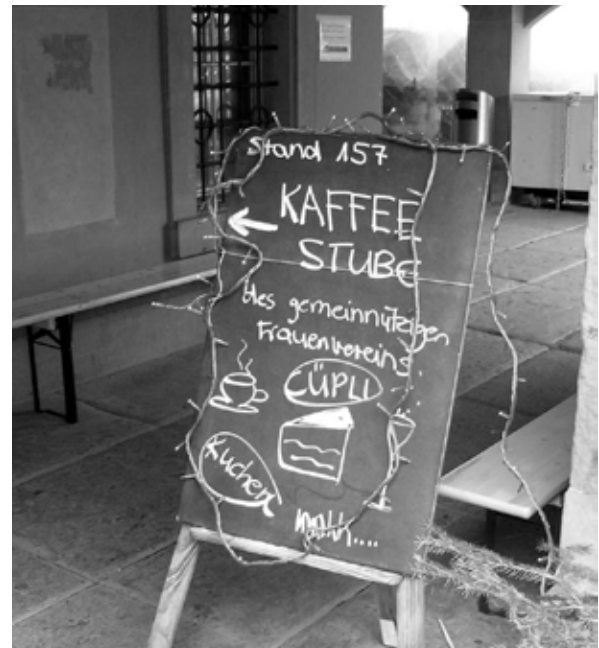 Stand 157
KAFFEE
STUBE
des gemeinnützigen
Frauenvereins
CÜPLI
Kuchen